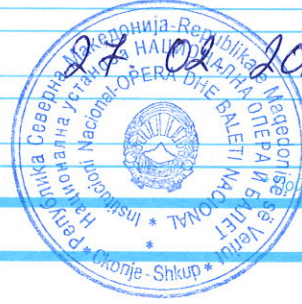 27. 02 20
Република Северна Македонија - Republika e Maqedonisë së Veriut
Национална установа НАЦИОНАЛНА ОПЕРА И БАЛЕТ
Institucioni Nacional OPERA DHE BALETI NACIONAL
* Скопје - Shkup *